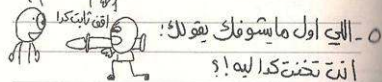 اقف ثابت كدا
٥- اللي اول مايشوفك يقولك:
انت تخنت كدا ليه!؟